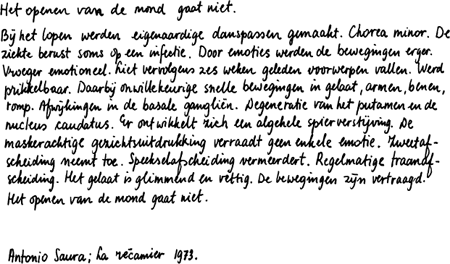 Het openen van de mond gaat niet.
Bij het lopen werden eigenaardige danspassen gemaakt. Chorea minor. De
ziekte berust soms op een infectie. Door emoties werden de bewegingen erger.
Vroeger emotioneel. Liet vervolgens zes weken geleden voorwerpen vallen. Werd
prikkelbaar. Daarbij onwillekeurige snelle bewegingen in gelaat, armen, benen,
romp. Afwijkingen in de basale gangliën. Degeneratie van het putamen en de
nucleus caudatus. Er ontwikkelt zich een algehele spierverstijving. De
maskerachtige gezichtsuitdrukking verraadt geen enkele emotie. Zweetaf-
scheiding neemt toe. Speekselafscheiding vermeerdert. Regelmatige traanaf-
scheiding. Het gelaat is glimmend en vettig. De bewegingen zijn vertraagd.
Het openen van de mond gaat niet.
Antonio Saura; La récamier 1973.